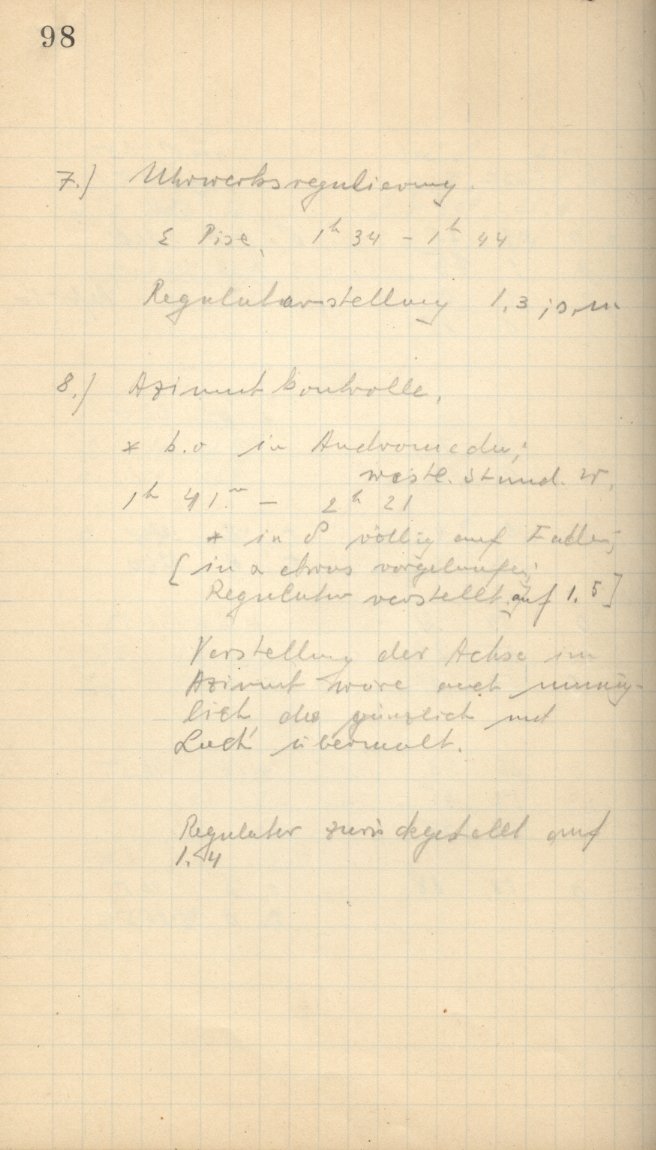 98
7.) Uhrwerksregulierung.
ε Pisc. 1h 34 - 1h 44
Regulatorstellung 1.3
8.) Azimutkontrolle.
* 6.0 in Andromeda;
westl. Stund. W.
1h 41m - 2h 21
* in δ völlig auf Faden;
[in α etwas vorgelaufen;
Regulator verstellt auf 1.5]
Verstellung der Achse im
Azimut wäre auch unmög-
lich da gänzlich mit
Lack übermalt.
Regulator zurückgestellt auf
1.4